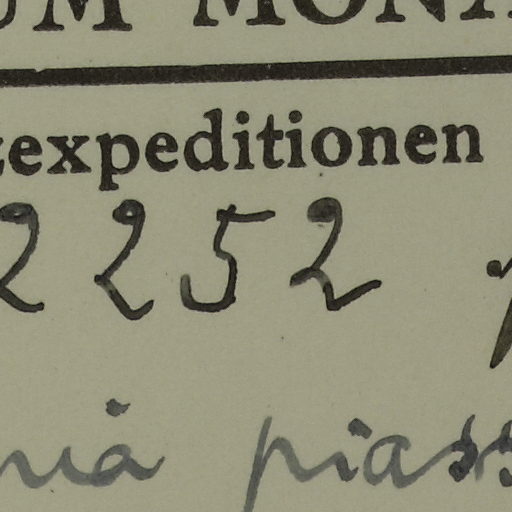 UM MONA
zexpeditionen
2252
nia piass